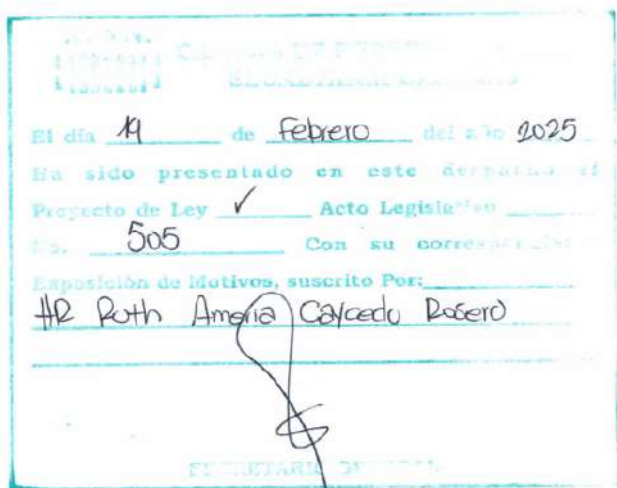 El día 19 de Febrero del año 2025
Ha sido presentado en este despacho el
Proyecto de Ley ✓ Acto Legislativo
No. 505 Con su correspondiente
Exposición de Motivos, suscrito Por:
HR Ruth Amelia Caycedo Rosero
SECRETARIO GENERAL